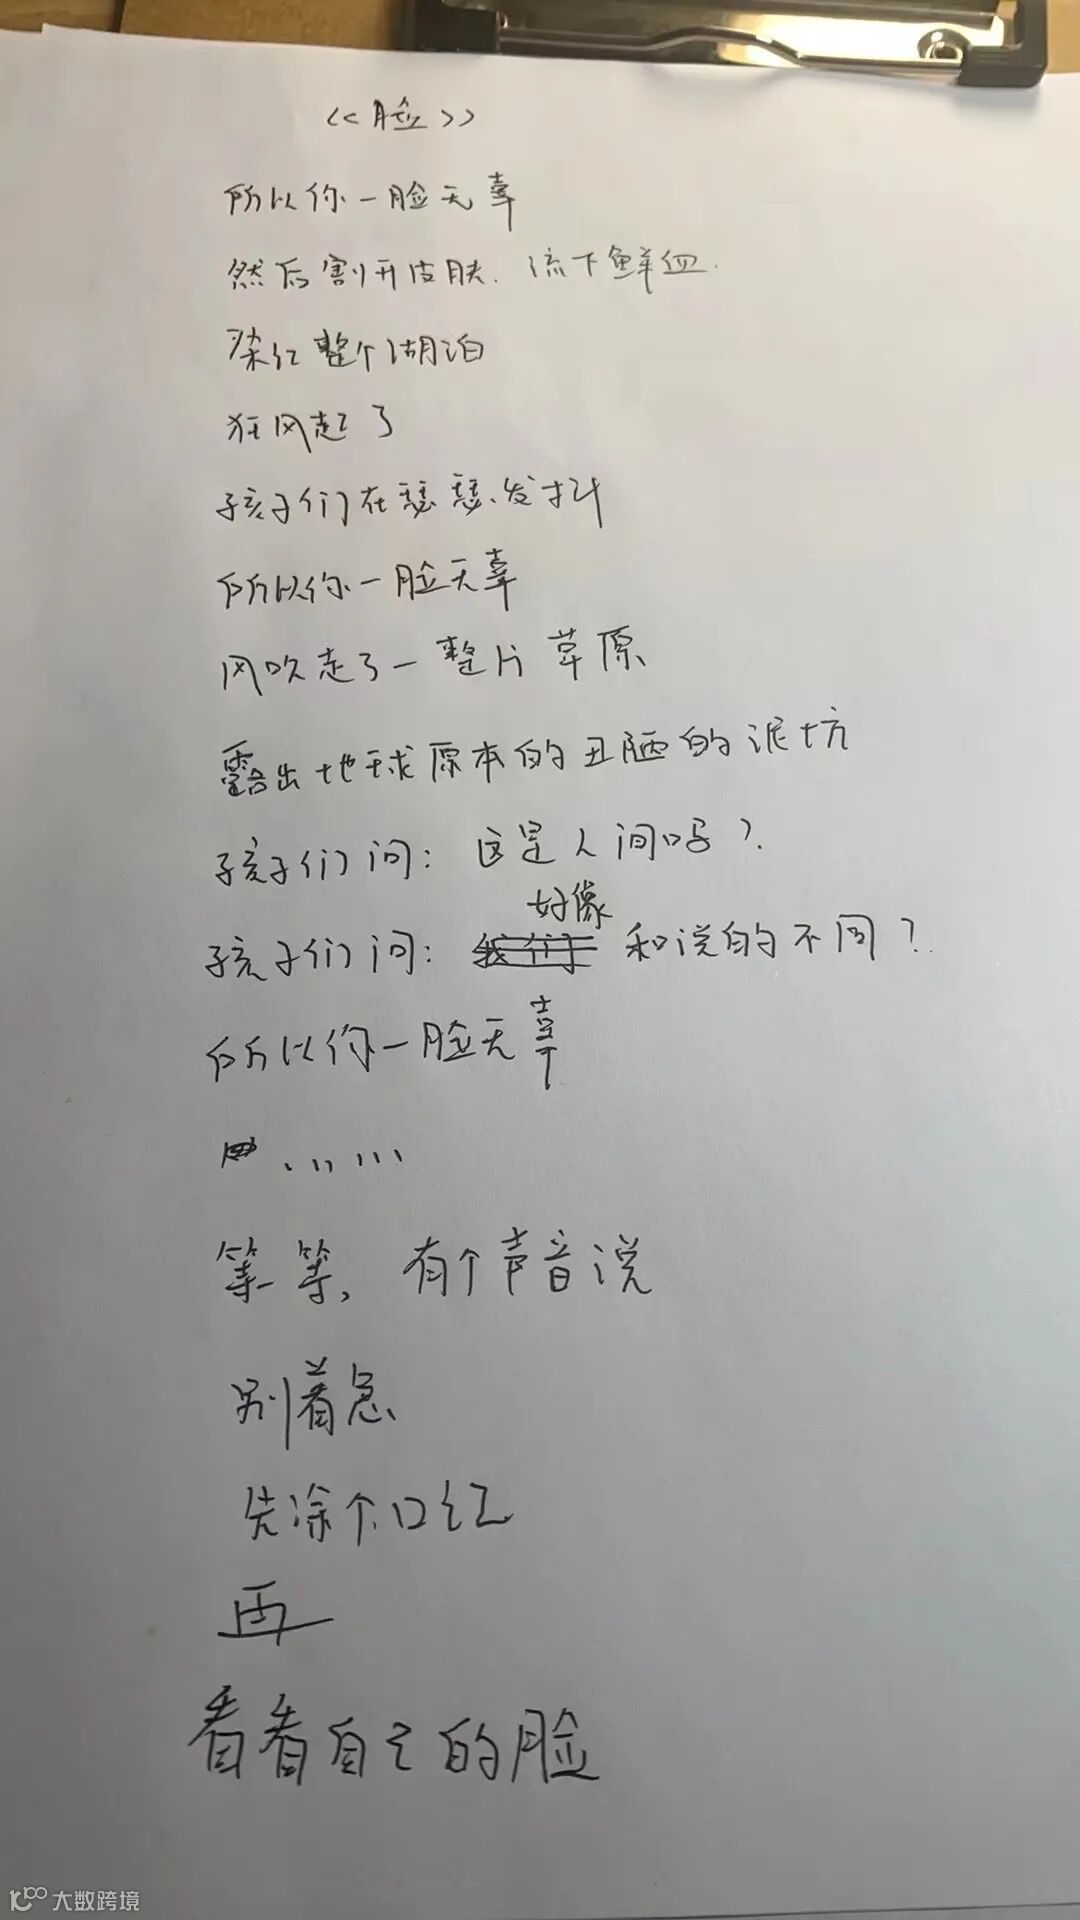 《脸》
所以你一脸无辜
然后割开皮肤.流下鲜血.
染红整个湖泊
狂风起了
孩子们在瑟瑟发抖
所以你一脸无辜
风吹走了一整片草原
露出地球原本的丑陋的泥坑
孩子们问：这是人间吗？
孩子们问：好像和说的不同？
所以你一脸无辜
……
等等，有个声音说
别着急
先涂个口红
再
看看自己的脸
大数跨境